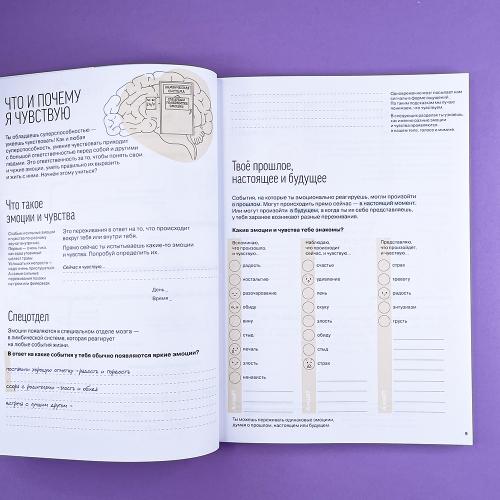 ЧТО И ПОЧЕМУ
Я ЧУВСТВУЮ
ЛИМБИЧЕСКАЯ
СИСТЕМА
Ты обладаешь суперспособностью —
умеешь чувствовать! Как и любая
суперспособность, умение чувствовать приходит
с большой ответственностью перед собой и другими
людьми. Это ответственность за то, чтобы понять свои
и чужие эмоции, уметь правильно их выразить
и жить с ними. Начнём этому учиться?
Что такое
эмоции и чувства
Это переживания в ответ на то, что происходит
вокруг тебя или внутри тебя.
Прямо сейчас ты испытываешь какие-то эмоции
и чувства. Попробуй определить их.
Сейчас я чувствую
День
Время
Спецотдел
Эмоции появляются в специальном отделе мозга —
в лимбической системе, которая реагирует
на любые события.
В ответ на какие события у тебя обычно появляются яркие эмоции?
поставили хорошую отметку - радость и гордость
ссора с родителями - злость и обида
встреча с лучшим другом -
Одновременно мозг посылает нам
сигналы в форме ощущений.
По таким подсказкам мы лучше
понимаем, что чувствуем.
В следующих разделах ты узнаешь,
как именно разные эмоции
и чувства проявляются
в нашем теле, голосе и мимике.
Твоё прошлое,
настоящее и будущее
События, на которые ты эмоционально реагируешь, могли произойти
в прошлом. Могут происходить прямо сейчас — в настоящий момент.
Или могут произойти в будущем, а когда ты их себе представляешь,
у тебя заранее возникают разные переживания.
Какие эмоции и чувства тебе знакомы?
Вспоминаю,
что произошло,
и чувствую...
радость
ностальгию
разочарование
обиду
вину
стыд
печаль
злость
ненависть
Наблюдаю,
что происходит
сейчас, и чувствую...
счастье
удивление
лень
скуку
злость
обиду
стыд
страх
Представляю,
что произойдёт,
и чувствую...
страх
тревогу
радость
энтузиазм
грусть
Ты можешь переживать одинаковые эмоции,
думая о прошлом, настоящем или будущем.
9